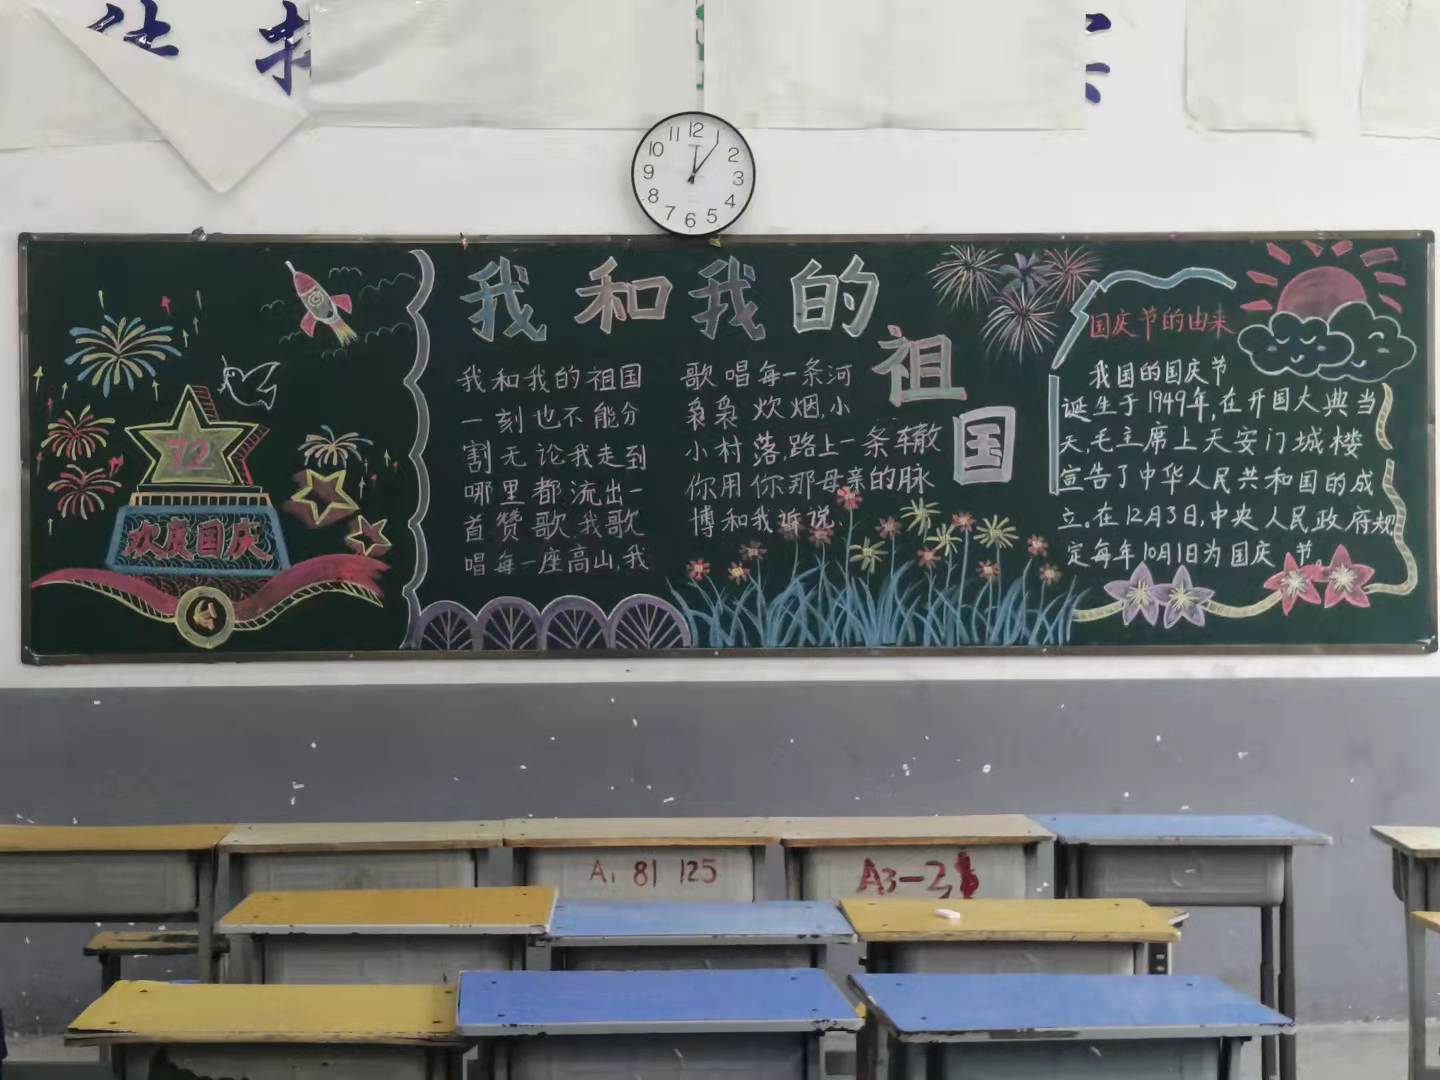 11 12 2
10 3
9 4
8 7 6 5
72
欢度国庆
我和我的祖国
我和我的祖国
一刻也不能分
割无论我走到
哪里都流出一
首赞歌.我歌
唱每一座高山,我
歌唱每一条河
袅袅炊烟,小
小村落,路上一条辙
你用你那母亲的脉
博和我诉说,
国庆节的由来
我国的国庆节
诞生于1949年,在开国大典当
天,毛主席上天安门城楼
宣告了中华人民共和国的成
立。在12月3日,中央人民政府规
定每年10月1日为国庆节。
A1 81 125
A3-2,